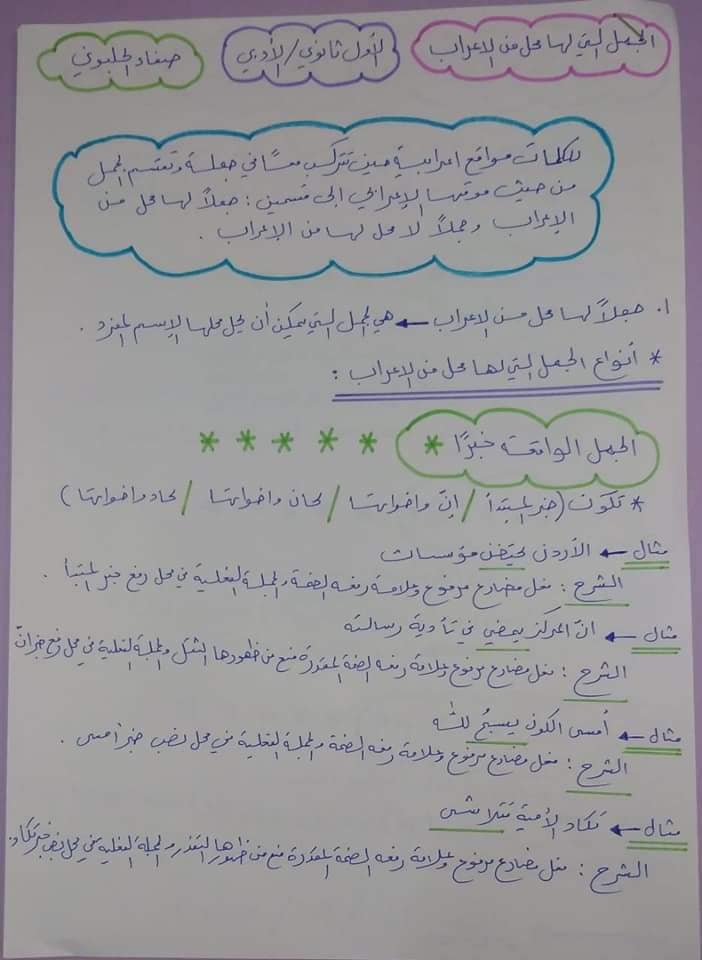 الجمل التي لها محل من الإعراب
الأول ثانوي / الأدبي
صفاء الحلبوني
للكلمات مواقع اعرابية حين تتركب معًا في جملة وتقسم الجمل
من حيث موقعها الإعرابي الى قسمين : جملاً لها محل من
الإعراب وجملاً لا محل لها من الإعراب .
١. جملاً لها محل من الإعراب ← هي الجمل التي يمكن أن يحل محلها الإسم المفرد .
* أنواع الجمل التي لها محل من الإعراب :
الجمل الواقعة خبرًا * * * * * *
* تكون ( خبر المبتدأ / إنّ واخواتها / كان واخواتها / كاد واخواتها )
مثال ← الأردن يحتضن مؤسسات
الشرح : فعل مضارع مرفوع وعلامة رفعه الضمة والجملة الفعلية في محل رفع خبر المبتدأ .
مثال ← انّ المركز يمضي في تأدية رسالته
الشرح : فعل مضارع مرفوع وعلامة رفعه الضمة المقدرة منع من ظهورها الثقل والجملة الفعلية في محل رفع خبر انّ
مثال ← أمسى الكون يسبحُ للّٰه
الشرح : فعل مضارع مرفوع وعلامة رفعه الضمة والجملة الفعلية في محل نصب خبر أمسى .
مثال ← تكاد الأمية تتلاشى
الشرح : فعل مضارع مرفوع وعلامة رفعه الضمة المقدرة منع من ظهورها التعذر والجملة الفعلية في محل نصب خبر تكاد .